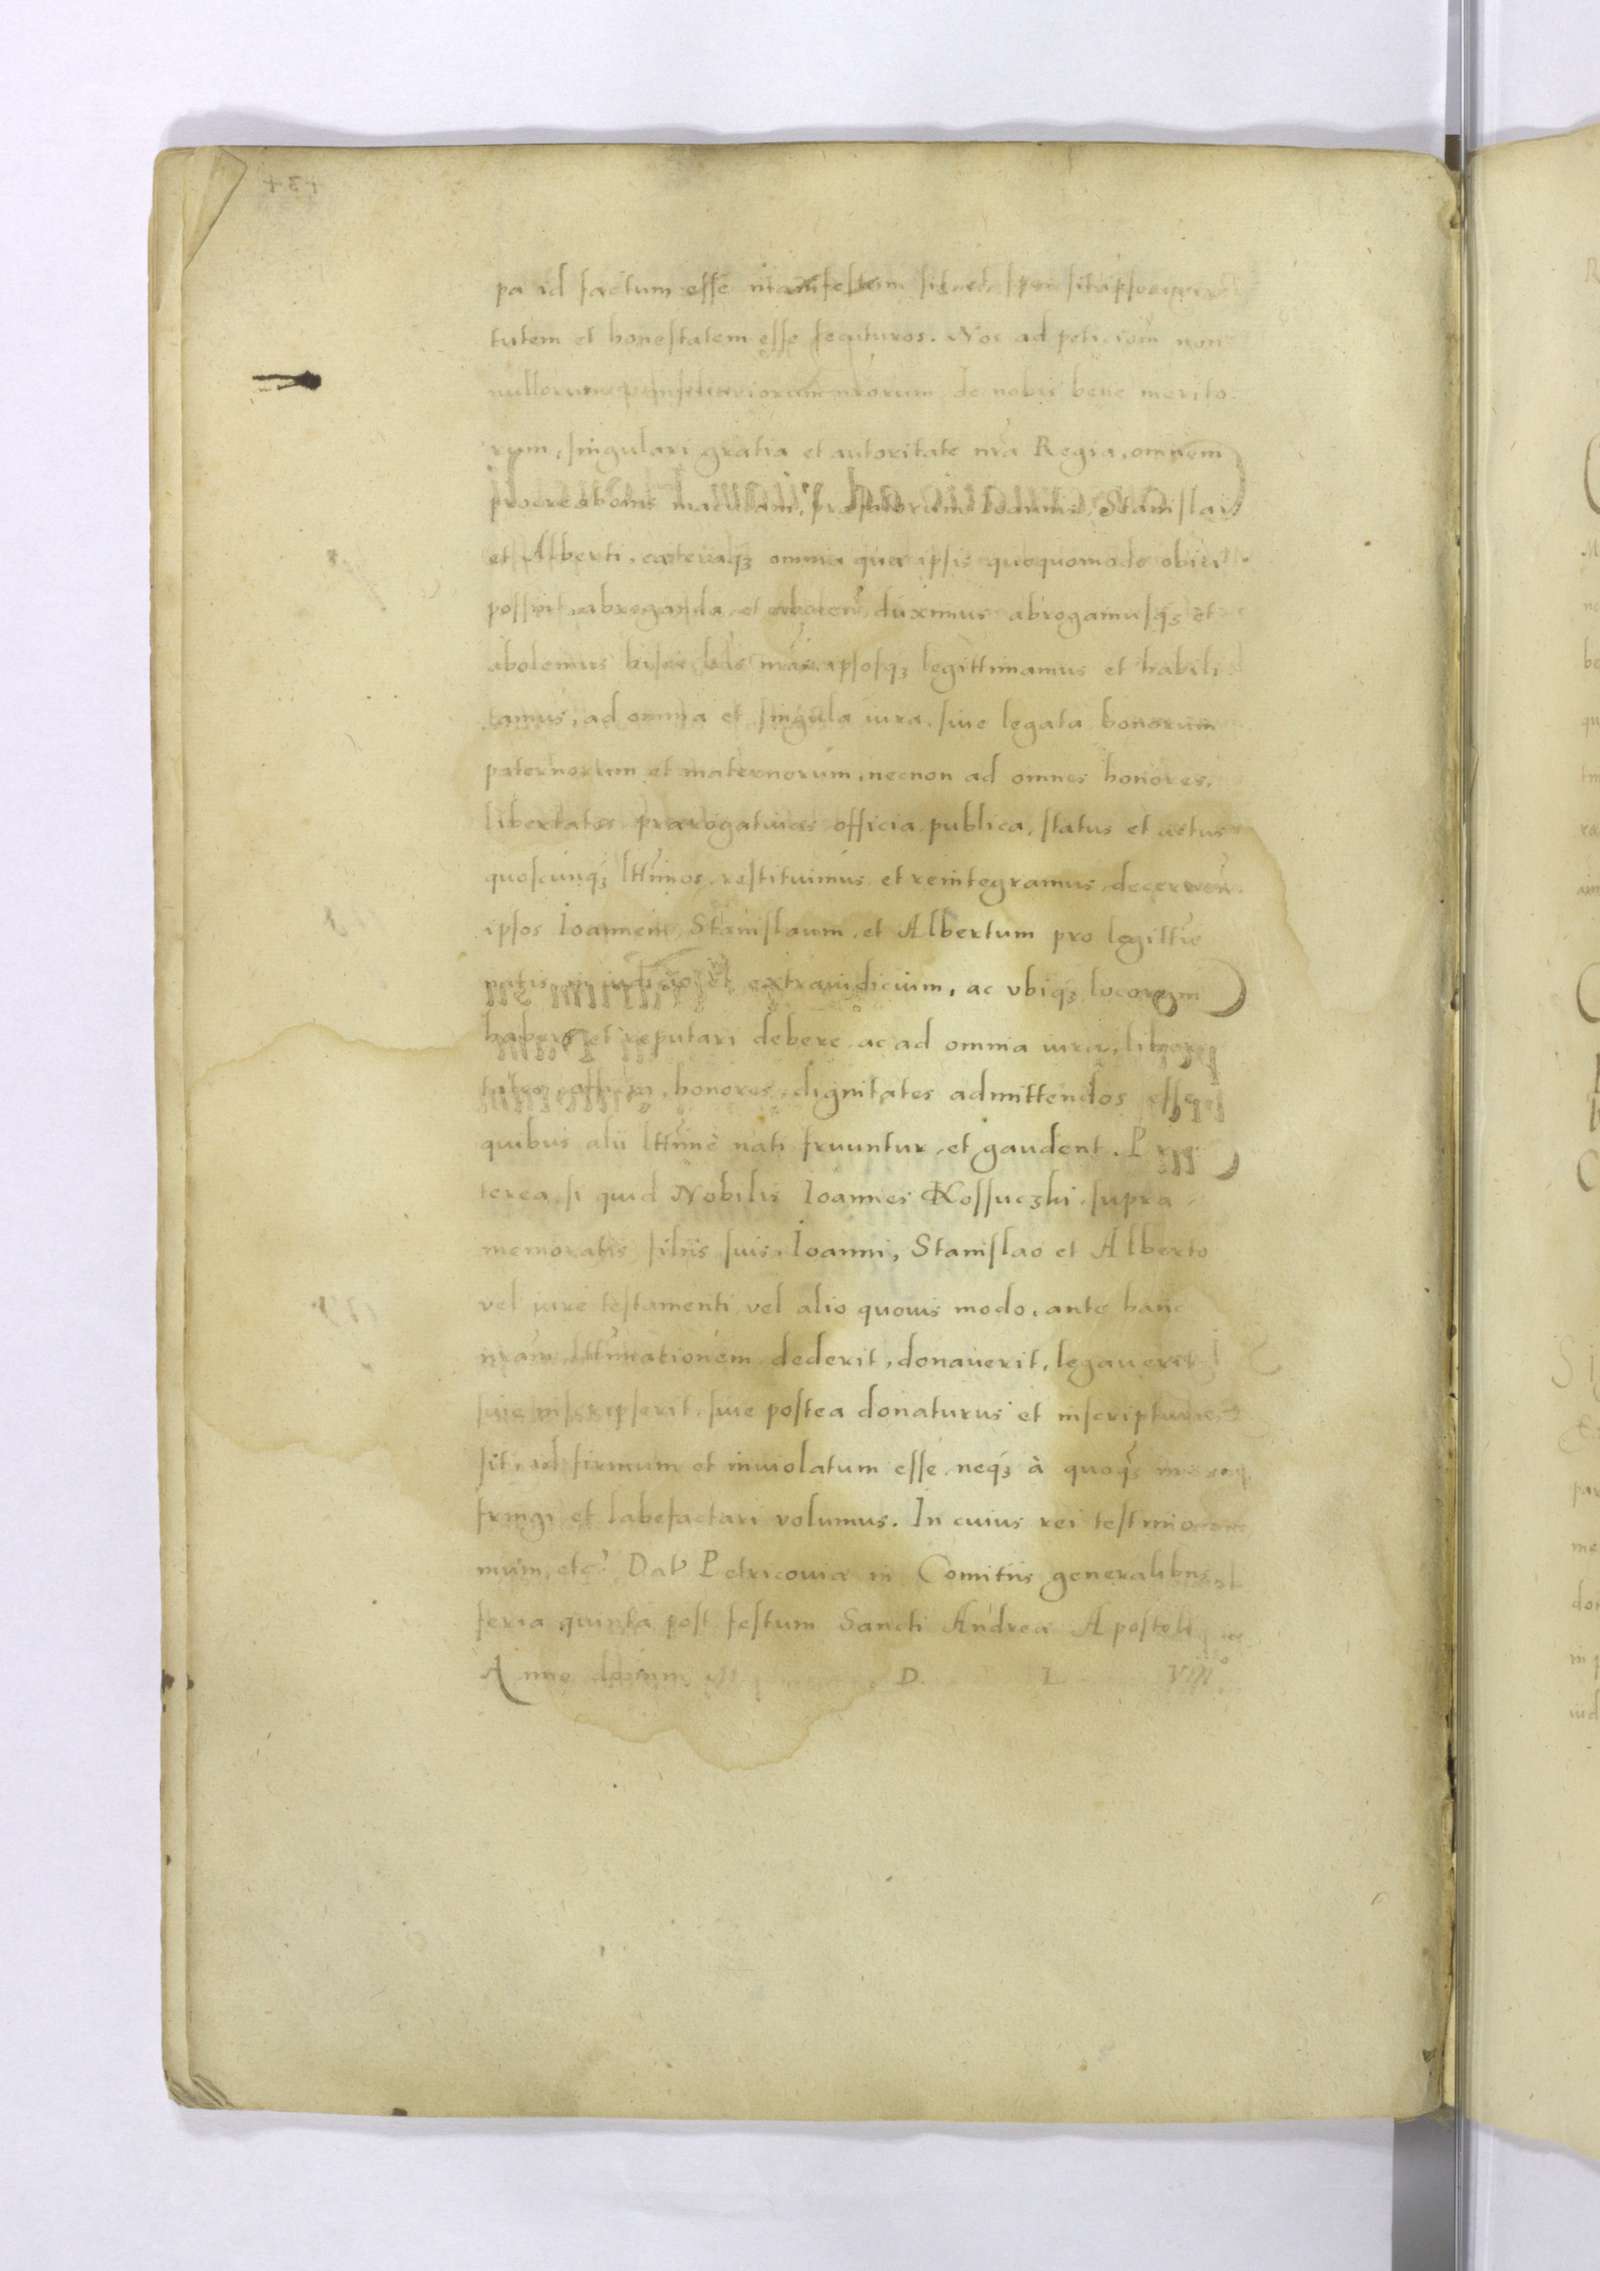 pa id factum esse manifestum sit et spes sit ipsos
tutem et honestatem esse secuturos. Nos ad peticiom non
nullorum consiliariorum nrorum de nobis bene merito
rum, singulari gratia et autoritate nra Regia, omnem
procreationis maculam, Ioannis, Stanislai
et Alberti, cateraqꝫ omnia quæ ipsis quoquomodo obiici
possent abroganda et abolen duximus abrogamusqꝫ et
abolemus hisce lris nris, ipsosqꝫ legittimamus et habili
tamus, ad omnia et singula iura, siue legata bonorum
paternorum et maternorum, necnon ad omnes honores,
libertates prærogatiuas officia publica, status et actus
quoscunqꝫ lttimos restituimus et reintegramus decernen
ipsos Ioannem, Stanislaum, et Albertum pro legittie
natis in iudicio et extraiudicium, ac vbiqꝫ locorum
haberi et reputari debere ac ad omnia iura, liber
tates, officia, honores, dignitates admittendos esse
quibus alii lttime nati fruuntur, et gaudent. Pre
terea si quid Nobilis Ioannes Kossuczki supra
memoratis filiis suis, Ioanni, Stanislao et Alberto
vel iure testamenti, vel alio quouis modo, ante hanc
nram lttimationem dederit, donauerit, legauerit
siue inscripserit, siue postea donaturus et inscripturus
sit, id firmum et inuiolatum esse neqꝫ à quoqꝫ in
fringi et labefactari volumus. In cuius rei testimo
nium, etc. Dat Petricouiæ in Comitiis generalibus
feria quinta post festum Sancti Andreæ Apostoli
Anno domini M D. L VIII°